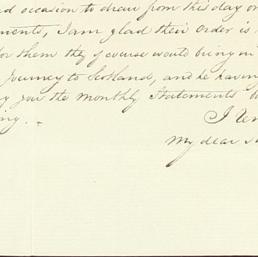 d occasion to draw from this day on
ments, I am glad their order is
for them they of course would being in
Journey to Scotland, and he havin
you the monthly Statements
ing.
I rem
My dear S